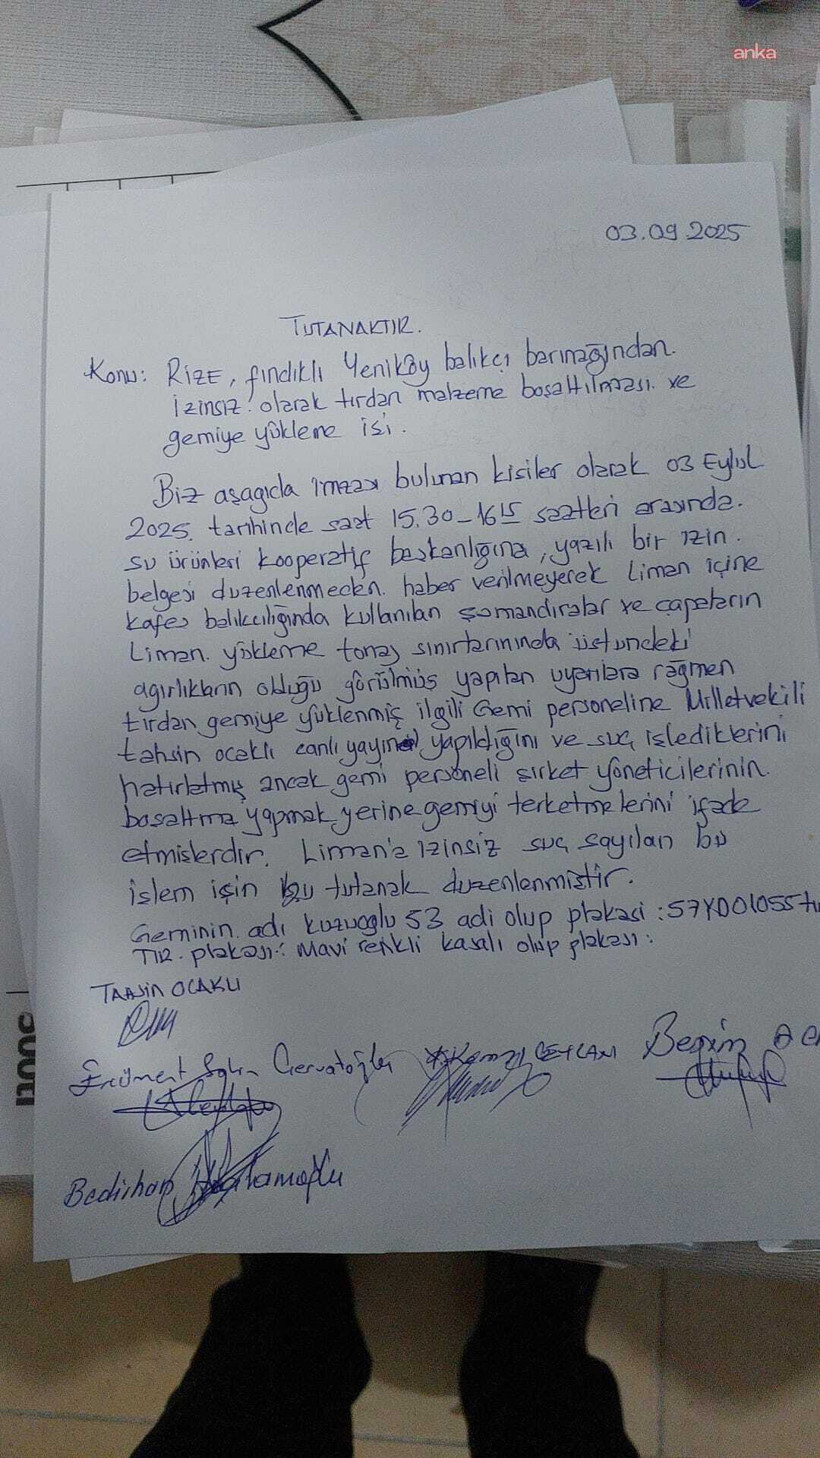 anka
03.09.2025
TUTANAKTIR.
Konu: RİZE, fındıklı Yeniköy balıkçı barınağından.
İzinsiz olarak tırdan malzeme boşaltılması ve
gemiye yükleme işi.
Biz aşagıda imzası bulunan kişiler olarak 03 Eylül
2025 tarihinde saat 15.30-1615 saatleri arasında.
su ürünleri kooperatif başkanlığına, yazılı bir izin.
belgesi düzenlenmeden. haber verilmeyerek Liman içine
Kafes balıkçılığında kullanılan şamandıralar ve çapaların
Liman. yükleme tonaj sınırlarınında üstündeki
agırlıkların olduğu görülmüş yapılan uyarılara rağmen
tırdan gemiye yüklenmiş ilgili Gemi personeline Milletvekili
tahsin ocaklı canlı yayın yapıldığını ve suç işlediklerini
hatırlatmış ancak gemi personeli şirket yöneticilerinin.
boşaltma yapmak yerine gemiyi terketmelerini ifade
etmişlerdir. Liman'a izinsiz suç sayılan bu
işlem için bu tutanak düzenlenmiştir.
Geminin adı Kuzuoglu 53 adi olup plakasi: 57Y001055
TIR. plakası: Mavi renkli kasalı olup plakası:
TAHSİN OCAKLI
Ercüment Cervatoğlu CEYLAN
Bedirhan
00011